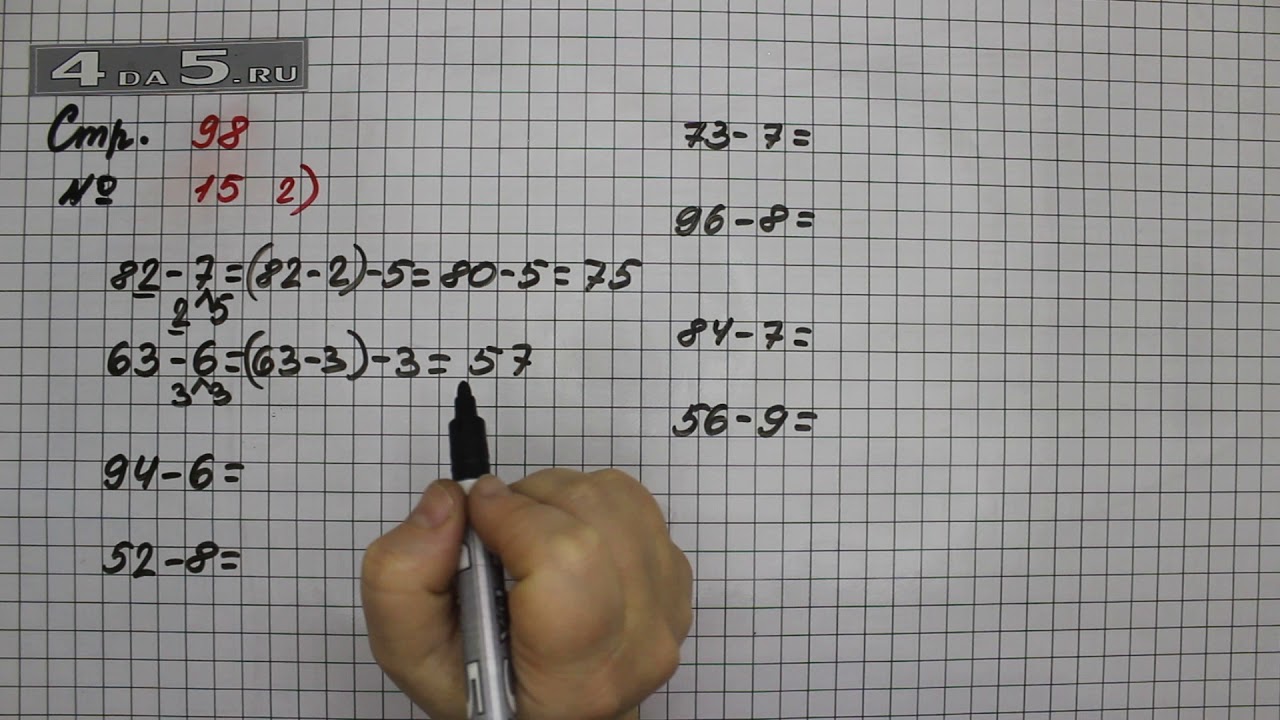 4DA5.RU
Стр. 98
№ 15 2)
82-7=(82-2)-5=80-5=75
2^5
63-6=(63-3)-3=57
3^3
94-6=
52-8=
73-7=
96-8=
84-7=
56-9=